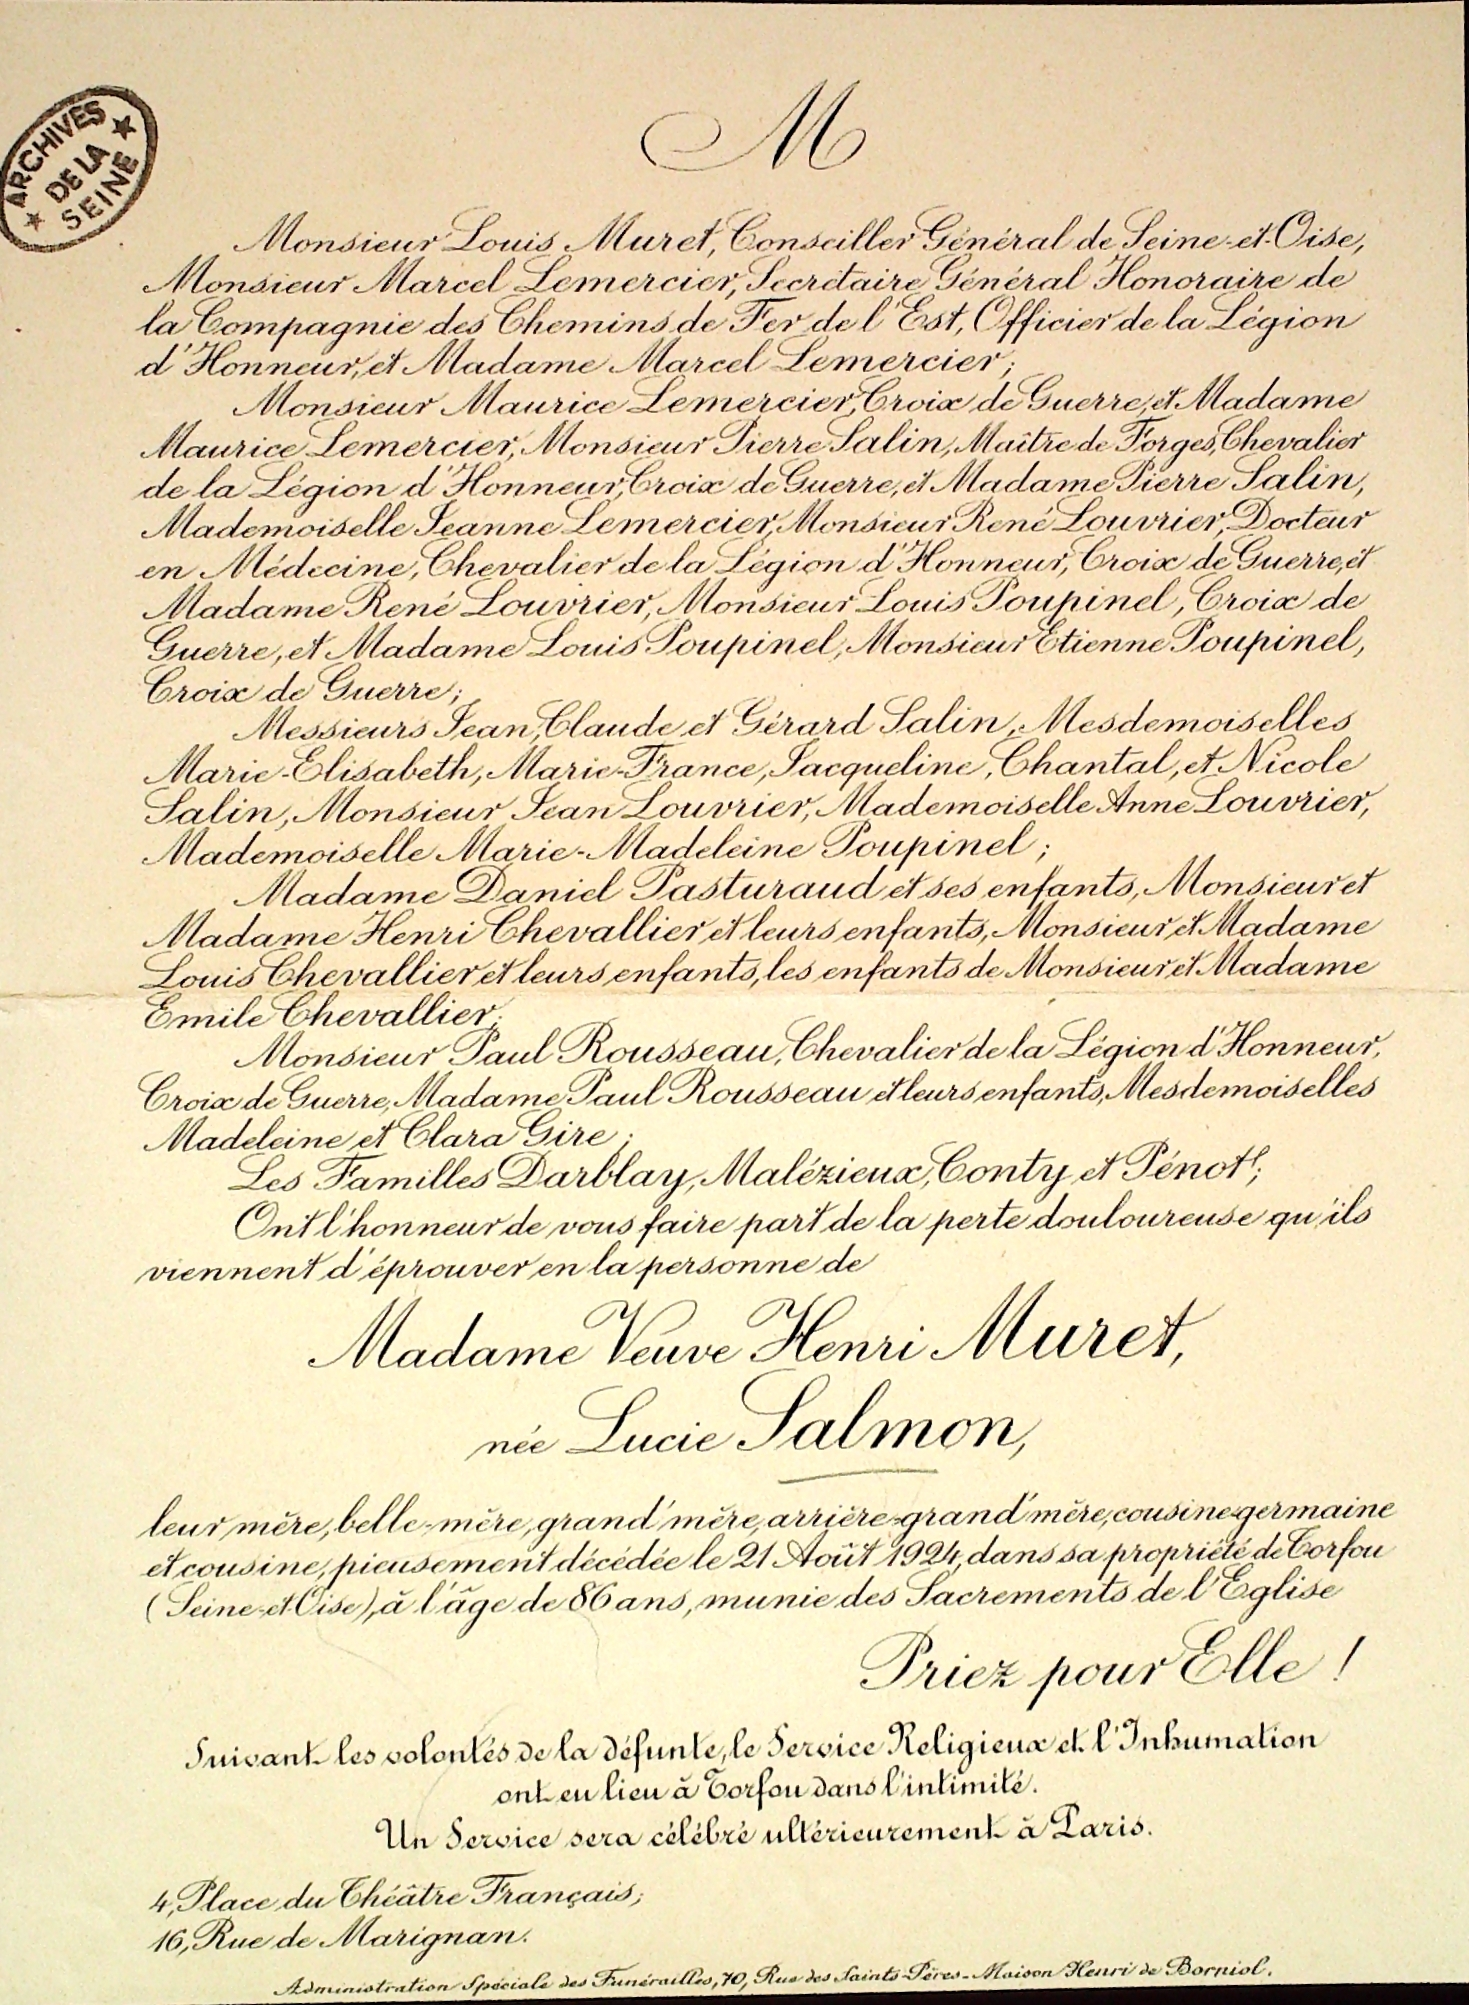 ARCHIVES
DE LA
SEINE
M
Monsieur Louis Muret, Conseiller Général de Seine-et-Oise,
Monsieur Marcel Lemercier, Secrétaire Général Honoraire de
la Compagnie des Chemins de Fer de l'Est, Officier de la Légion
d'Honneur, et Madame Marcel Lemercier;
Monsieur Maurice Lemercier, Croix de Guerre, et Madame
Maurice Lemercier, Monsieur Pierre Salin, Maître de Forges, Chevalier
de la Légion d'Honneur, Croix de Guerre, et Madame Pierre Salin,
Mademoiselle Jeanne Lemercier, Monsieur René Louvrier, Docteur
en Médecine, Chevalier de la Légion d'Honneur, Croix de Guerre, et
Madame René Louvrier, Monsieur Louis Poupinel, Croix de
Guerre, et Madame Louis Poupinel, Monsieur Etienne Poupinel,
Croix de Guerre;
Messieurs Jean, Claude et Gérard Salin, Mesdemoiselles
Marie-Elisabeth, Marie-France, Jacqueline, Chantal, et Nicole
Salin, Monsieur Jean Louvrier, Mademoiselle Anne Louvrier,
Mademoiselle Marie-Madeleine Poupinel;
Madame Daniel Pasturaud et ses enfants, Monsieur et
Madame Henri Chevallier et leurs enfants, Monsieur et Madame
Louis Chevallier et leurs enfants, les enfants de Monsieur et Madame
Emile Chevallier;
Monsieur Paul Rousseau, Chevalier de la Légion d'Honneur,
Croix de Guerre, Madame Paul Rousseau et leurs enfants, Mesdemoiselles
Madeleine et Clara Gire;
Les Familles Darblay, Malézieux, Conty et Pénot;
Ont l'honneur de vous faire part de la perte douloureuse qu'ils
viennent d'éprouver en la personne de
Madame Veuve Henri Muret,
née Lucie Salmon,
leur mère, belle-mère, grand'mère, arrière-grand'mère, cousine germaine
et cousine, pieusement décédée le 21 Août 1924, dans sa propriété de Torfou
(Seine-et-Oise), à l'âge de 86 ans, munie des Sacrements de l'Eglise
Priez pour Elle !
Suivant les volontés de la défunte, le Service Religieux et l'Inhumation
ont eu lieu à Torfou dans l'intimité.
Un Service sera célébré ultérieurement à Paris.
4, Place du Théâtre Français;
16, Rue de Marignan.
Administration Spéciale des Funérailles, 70, Rue des Saints-Pères - Maison Henri de Borniol.